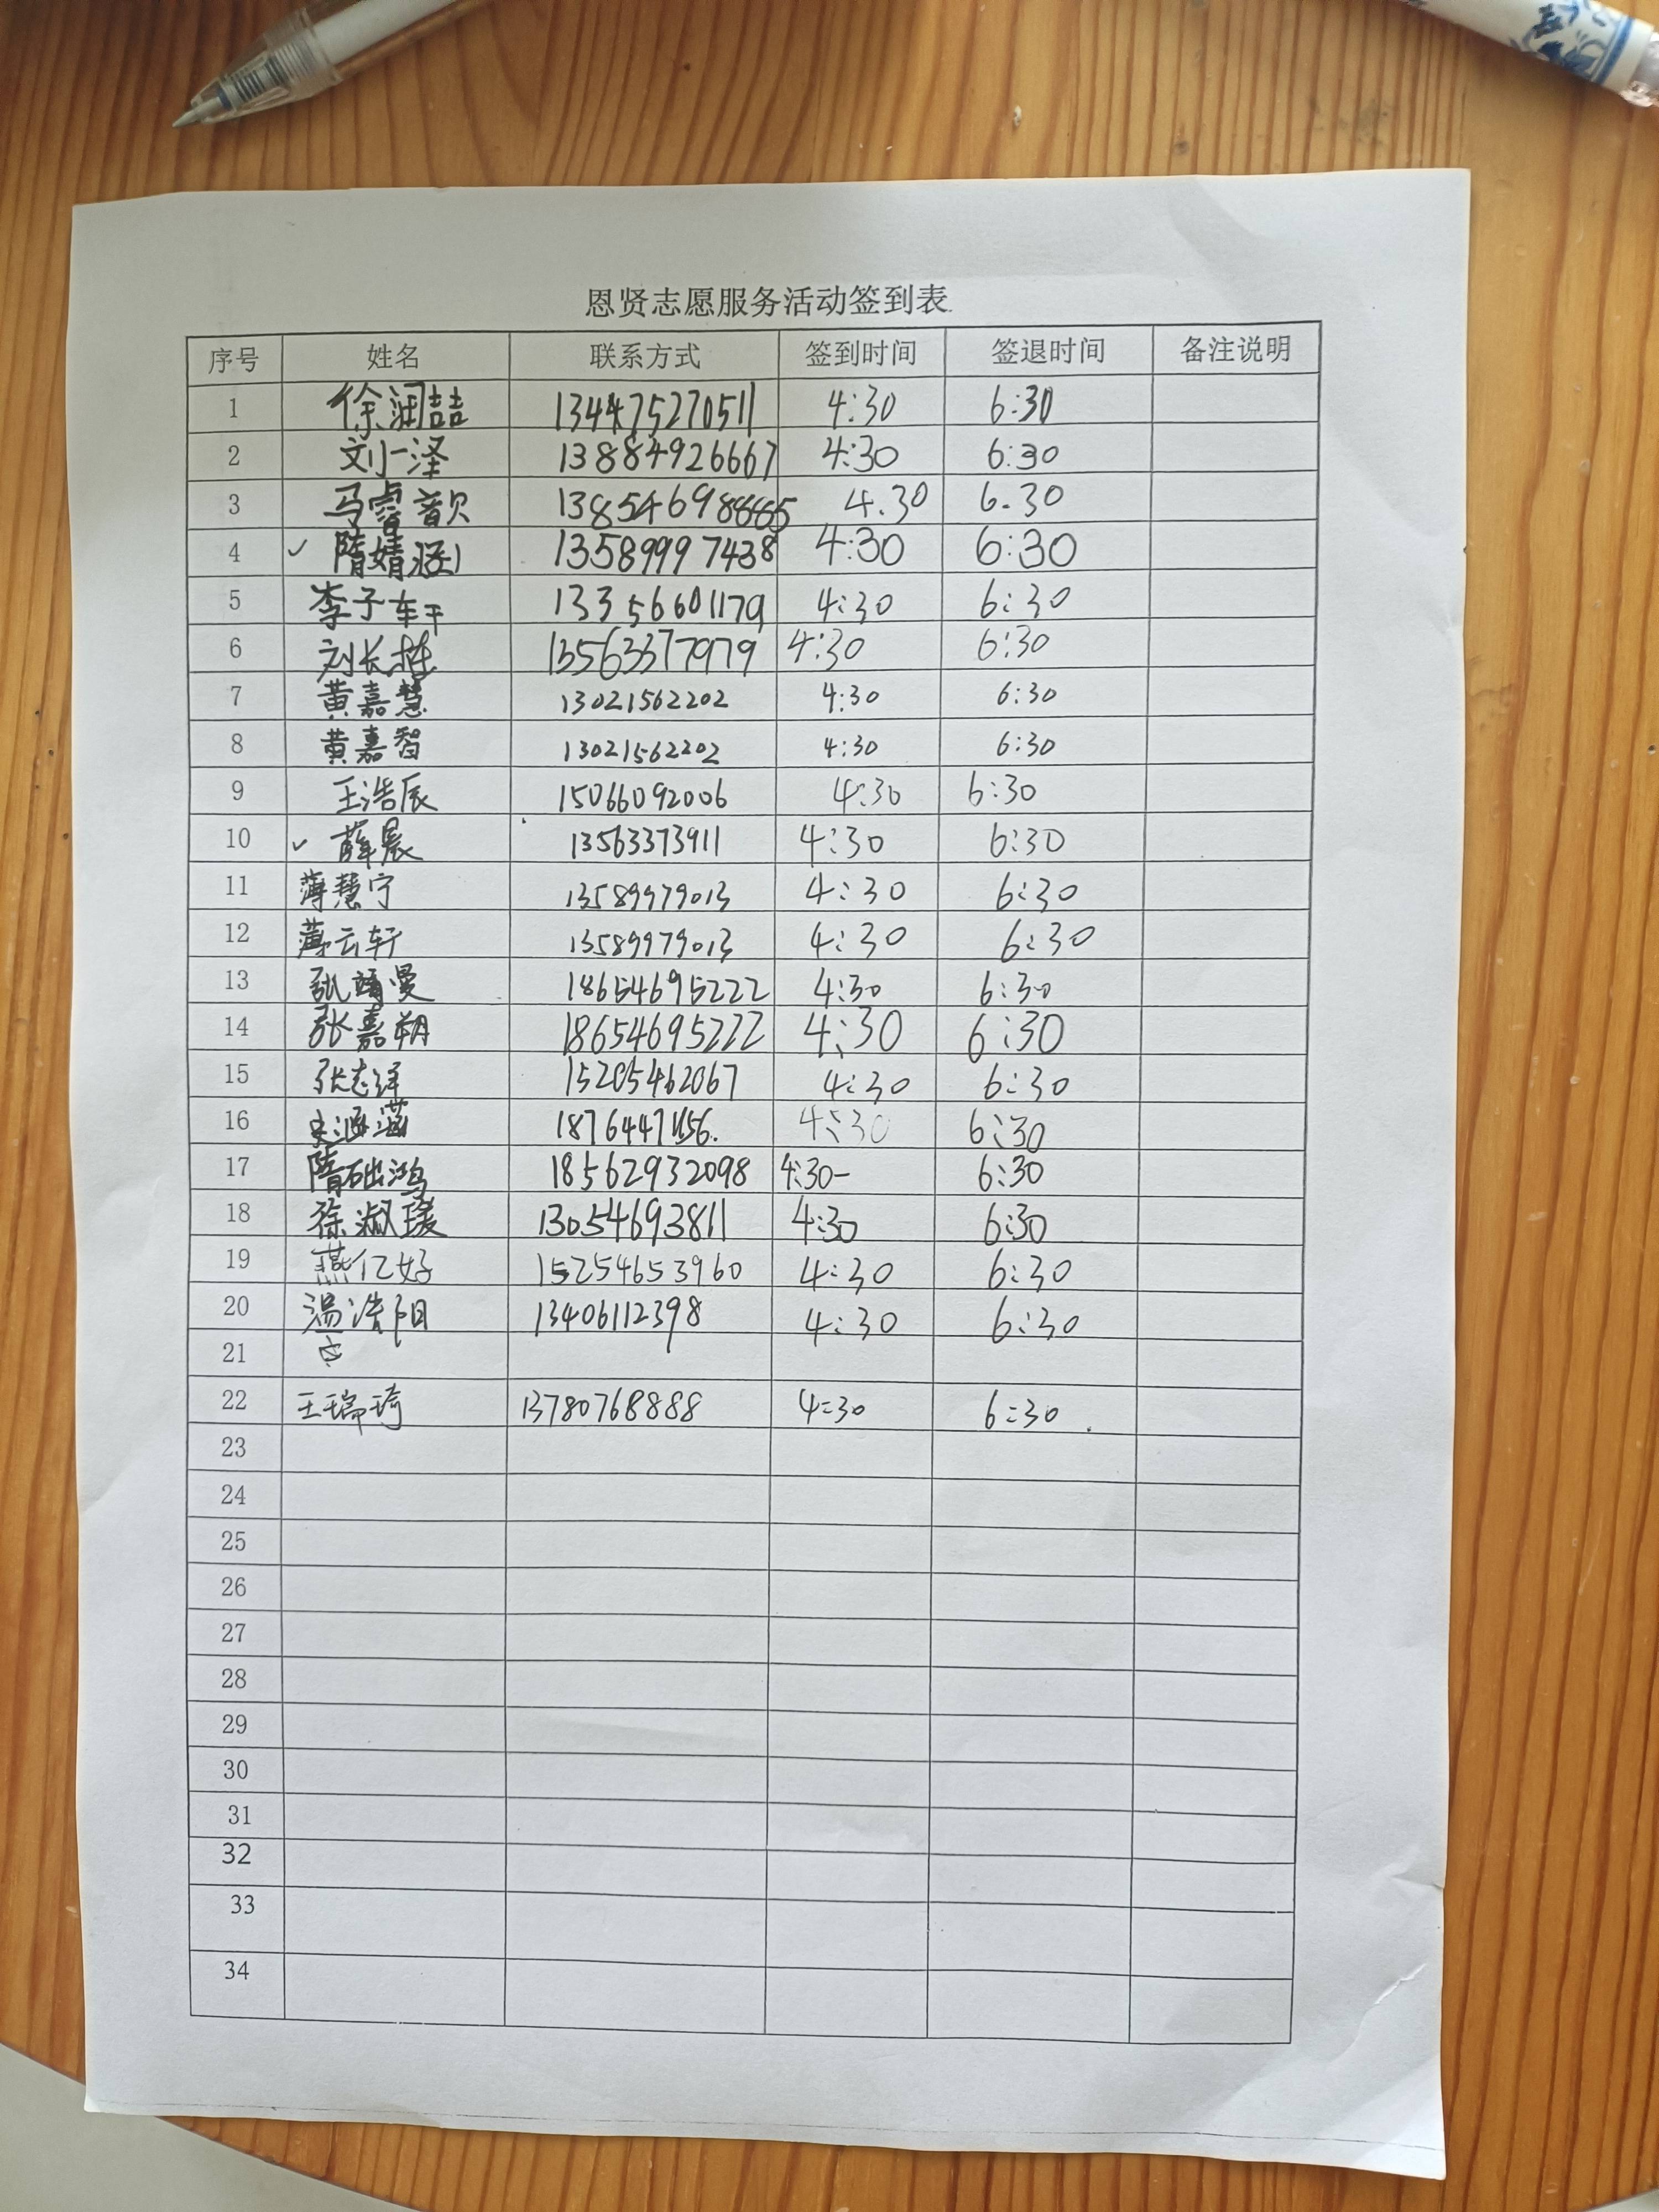 恩贤志愿服务活动签到表
序号 姓名 联系方式 签到时间 签退时间 备注说明
1 徐润喆 13447527051 4:30 6:30
2 刘一泽 13884926667 4:30 6:30
3 马睿歆 4.30 6.30
4 ✓ 隋婧涵 13589997438 4:30 6:30
5 李子轩 13356601179 4:30 6:30
6 刘长 13563377979 4:30 6:30
7 黄嘉慧 13021562202 4:30 6:30
8 黄嘉智 13021562202 4:30 6:30
9 王浩辰 15066092006 4:30 6:30
10 ✓ 薛晨 13563373911 4:30 6:30
11 薄慧宁 13589979013 4:30 6:30
12 薄云轩 13589979013 4:30 6:30
13 张靖曼 18654695222 4:30 6:30
14 张嘉朔 18654695222 4:30 6:30
15 张志洋 15205462067 4:30 6:30
16 4:30 6:30
17 隋础鸿 18562932098 4:30- 6:30
18 徐淑瑗 13054693811 4:30 6:30
19 燕亿好 15254653960 4:30 6:30
20 温浩阳 13406112398 4:30 6:30
21
22 王瑞琦 13780768888 4:30 6:30
23
24
25
26
27
28
29
30
31
32
33
34